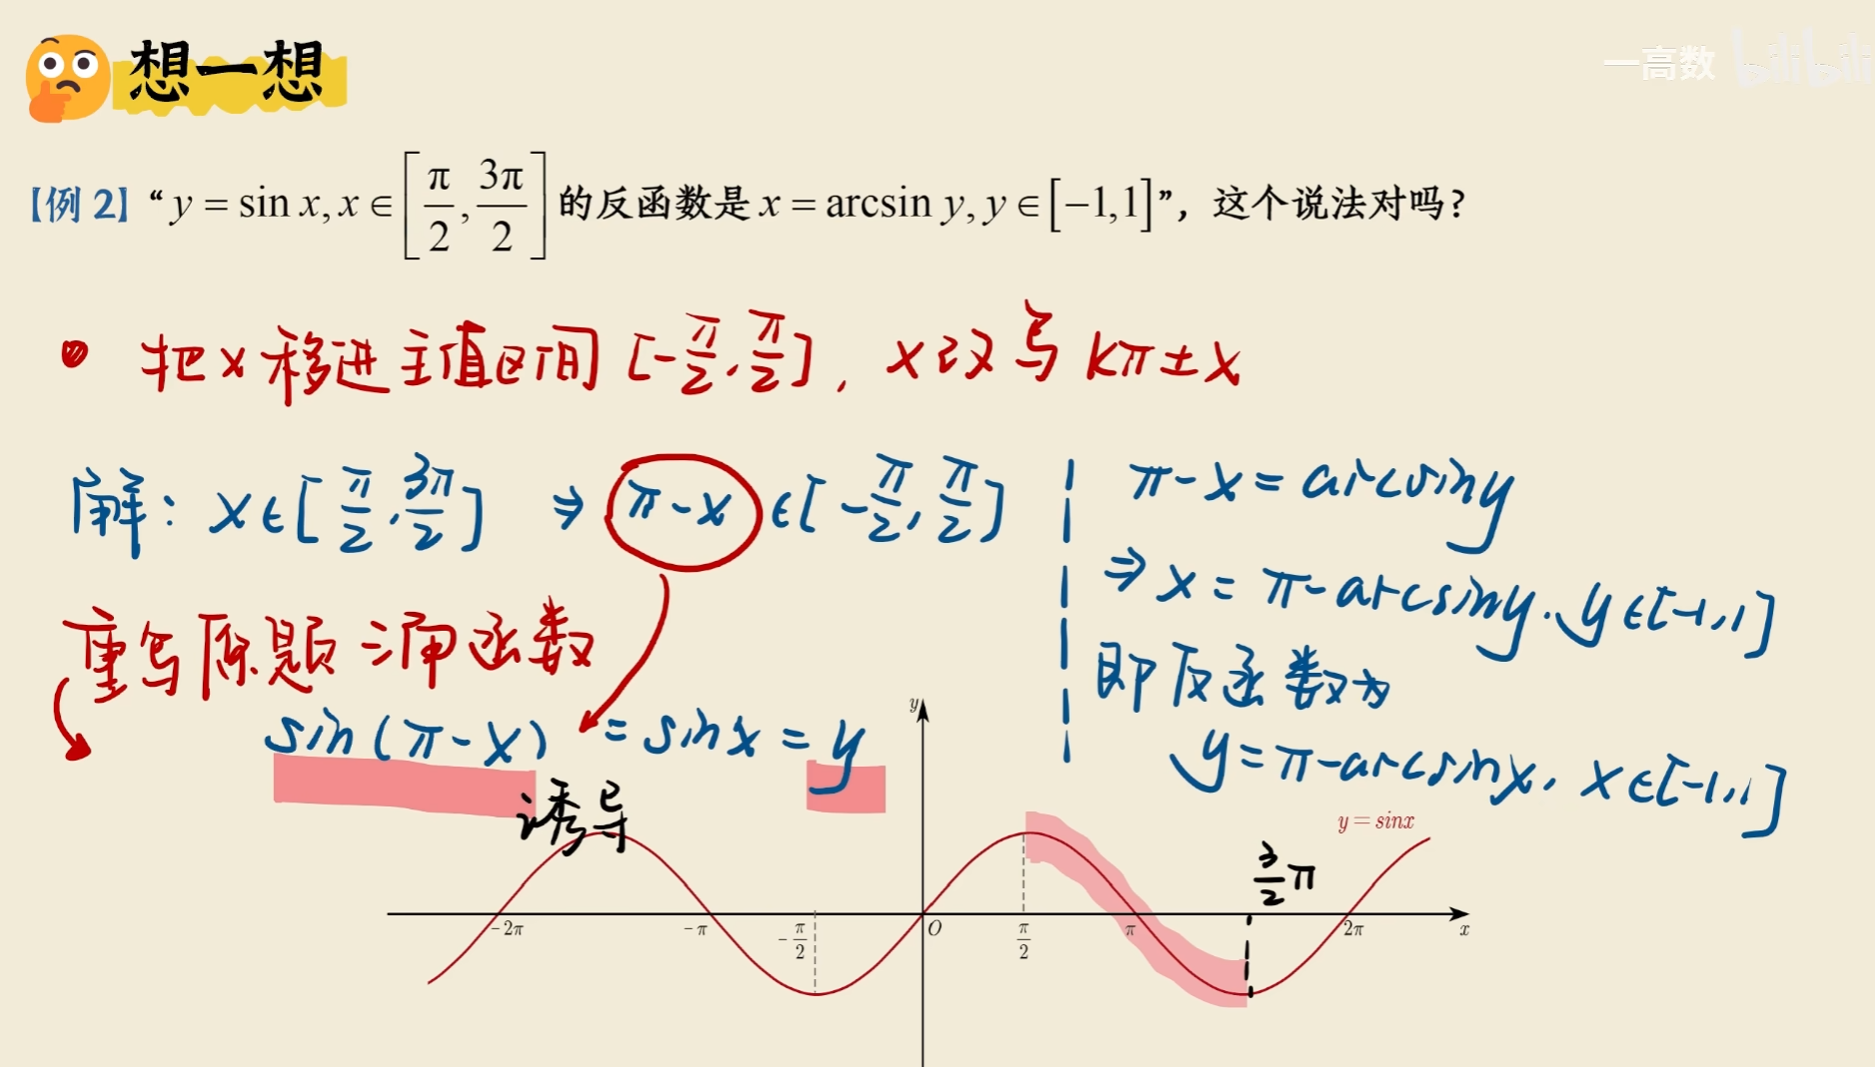 想一想
一高数 bilibili
【例 2】“y = sin x, x ∈ [π/2, 3π/2] 的反函数是 x = arcsin y, y ∈ [−1,1]”，这个说法对吗？
• 把 x 移进主值区间 [-π/2, π/2]，x 改写 kπ±x
解：x∈[π/2, 3π/2] ⇒ π-x ∈[-π/2, π/2]
重写原题三角函数
sin(π-x) = sinx = y
诱导
π-x = arcsiny
⇒ x = π-arcsiny. y∈[-1,1]
即反函数为
y = π-arcsinx, x∈[-1,1]
y
y = sinx
3/2 π
-2π -π -π/2 O π/2 π 2π x